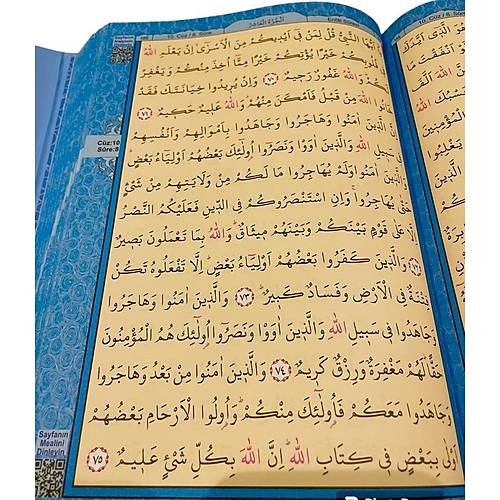 10. Cüz / 8. Sûre
اَلْجُزْءُ الْعَاشِرُ
Enfâl Sûresi
يَٓا اَيُّهَا النَّبِيُّ قُلْ لِمَنْ ف۪ٓي اَيْد۪يكُمْ مِنَ الْاَسْرٰٓىۙ اِنْ يَعْلَمِ اللّٰهُ
ف۪ي قُلُوبِكُمْ خَيْرًا يُؤْتِكُمْ خَيْرًا مِمَّٓا اُخِذَ مِنْكُمْ وَيَغْفِرْ
لَكُمْۜ وَاللّٰهُ غَفُورٌ رَح۪يمٌ ﴿٧٠﴾ وَاِنْ يُر۪يدُوا خِيَانَتَكَ فَقَدْ
خَانُوا اللّٰهَ مِنْ قَبْلُ فَاَمْكَنَ مِنْهُمْۜ وَاللّٰهُ عَل۪يمٌ حَك۪يمٌ ﴿٧١﴾
اِنَّ الَّذ۪ينَ اٰمَنُوا وَهَاجَرُوا وَجَاهَدُوا بِاَمْوَالِهِمْ وَاَنْفُسِهِمْ
ف۪ي سَب۪يلِ اللّٰهِ وَالَّذ۪ينَ اٰوَوْا وَنَصَرُٓوا اُو۬لٰٓئِكَ بَعْضُهُمْ اَوْلِيَٓاءُ بَعْضٍۜ
وَالَّذ۪ينَ اٰمَنُوا وَلَمْ يُهَاجِرُوا مَا لَكُمْ مِنْ وَلَايَتِهِمْ مِنْ شَيْءٍ
حَتّٰى يُهَاجِرُواۚ وَاِنِ اسْتَنْصَرُوكُمْ فِي الدّ۪ينِ فَعَلَيْكُمُ النَّصْرُ
اِلَّا عَلٰى قَوْمٍ بَيْنَكُمْ وَبَيْنَهُمْ م۪يثَاقٌۜ وَاللّٰهُ بِمَا تَعْمَلُونَ بَص۪يرٌ
﴿٧٢﴾ وَالَّذ۪ينَ كَفَرُوا بَعْضُهُمْ اَوْلِيَٓاءُ بَعْضٍۜ اِلَّا تَفْعَلُوهُ تَكُنْ
فِتْنَةٌ فِي الْاَرْضِ وَفَسَادٌ كَب۪يرٌۜ ﴿٧٣﴾ وَالَّذ۪ينَ اٰمَنُوا وَهَاجَرُوا
وَجَاهَدُوا ف۪ي سَب۪يلِ اللّٰهِ وَالَّذ۪ينَ اٰوَوْا وَنَصَرُٓوا اُو۬لٰٓئِكَ هُمُ الْمُؤْمِنُونَ
حَقًّاۜ لَهُمْ مَغْفِرَةٌ وَرِزْقٌ كَر۪يمٌ ﴿٧٤﴾ وَالَّذ۪ينَ اٰمَنُوا مِنْ بَعْدُ وَهَاجَرُوا
وَجَاهَدُوا مَعَكُمْ فَاُو۬لٰٓئِكَ مِنْكُمْۜ وَاُو۬لُوا الْاَرْحَامِ بَعْضُهُمْ
اَوْلٰى بِبَعْضٍ ف۪ي كِتَابِ اللّٰهِۜ اِنَّ اللّٰهَ بِكُلِّ شَيْءٍ عَل۪يمٌ ﴿٧٥﴾
Cüz:10
Sûre:8
Sayfanın
Mealini
Dinleyin
10. Cüz / 8. Sûre